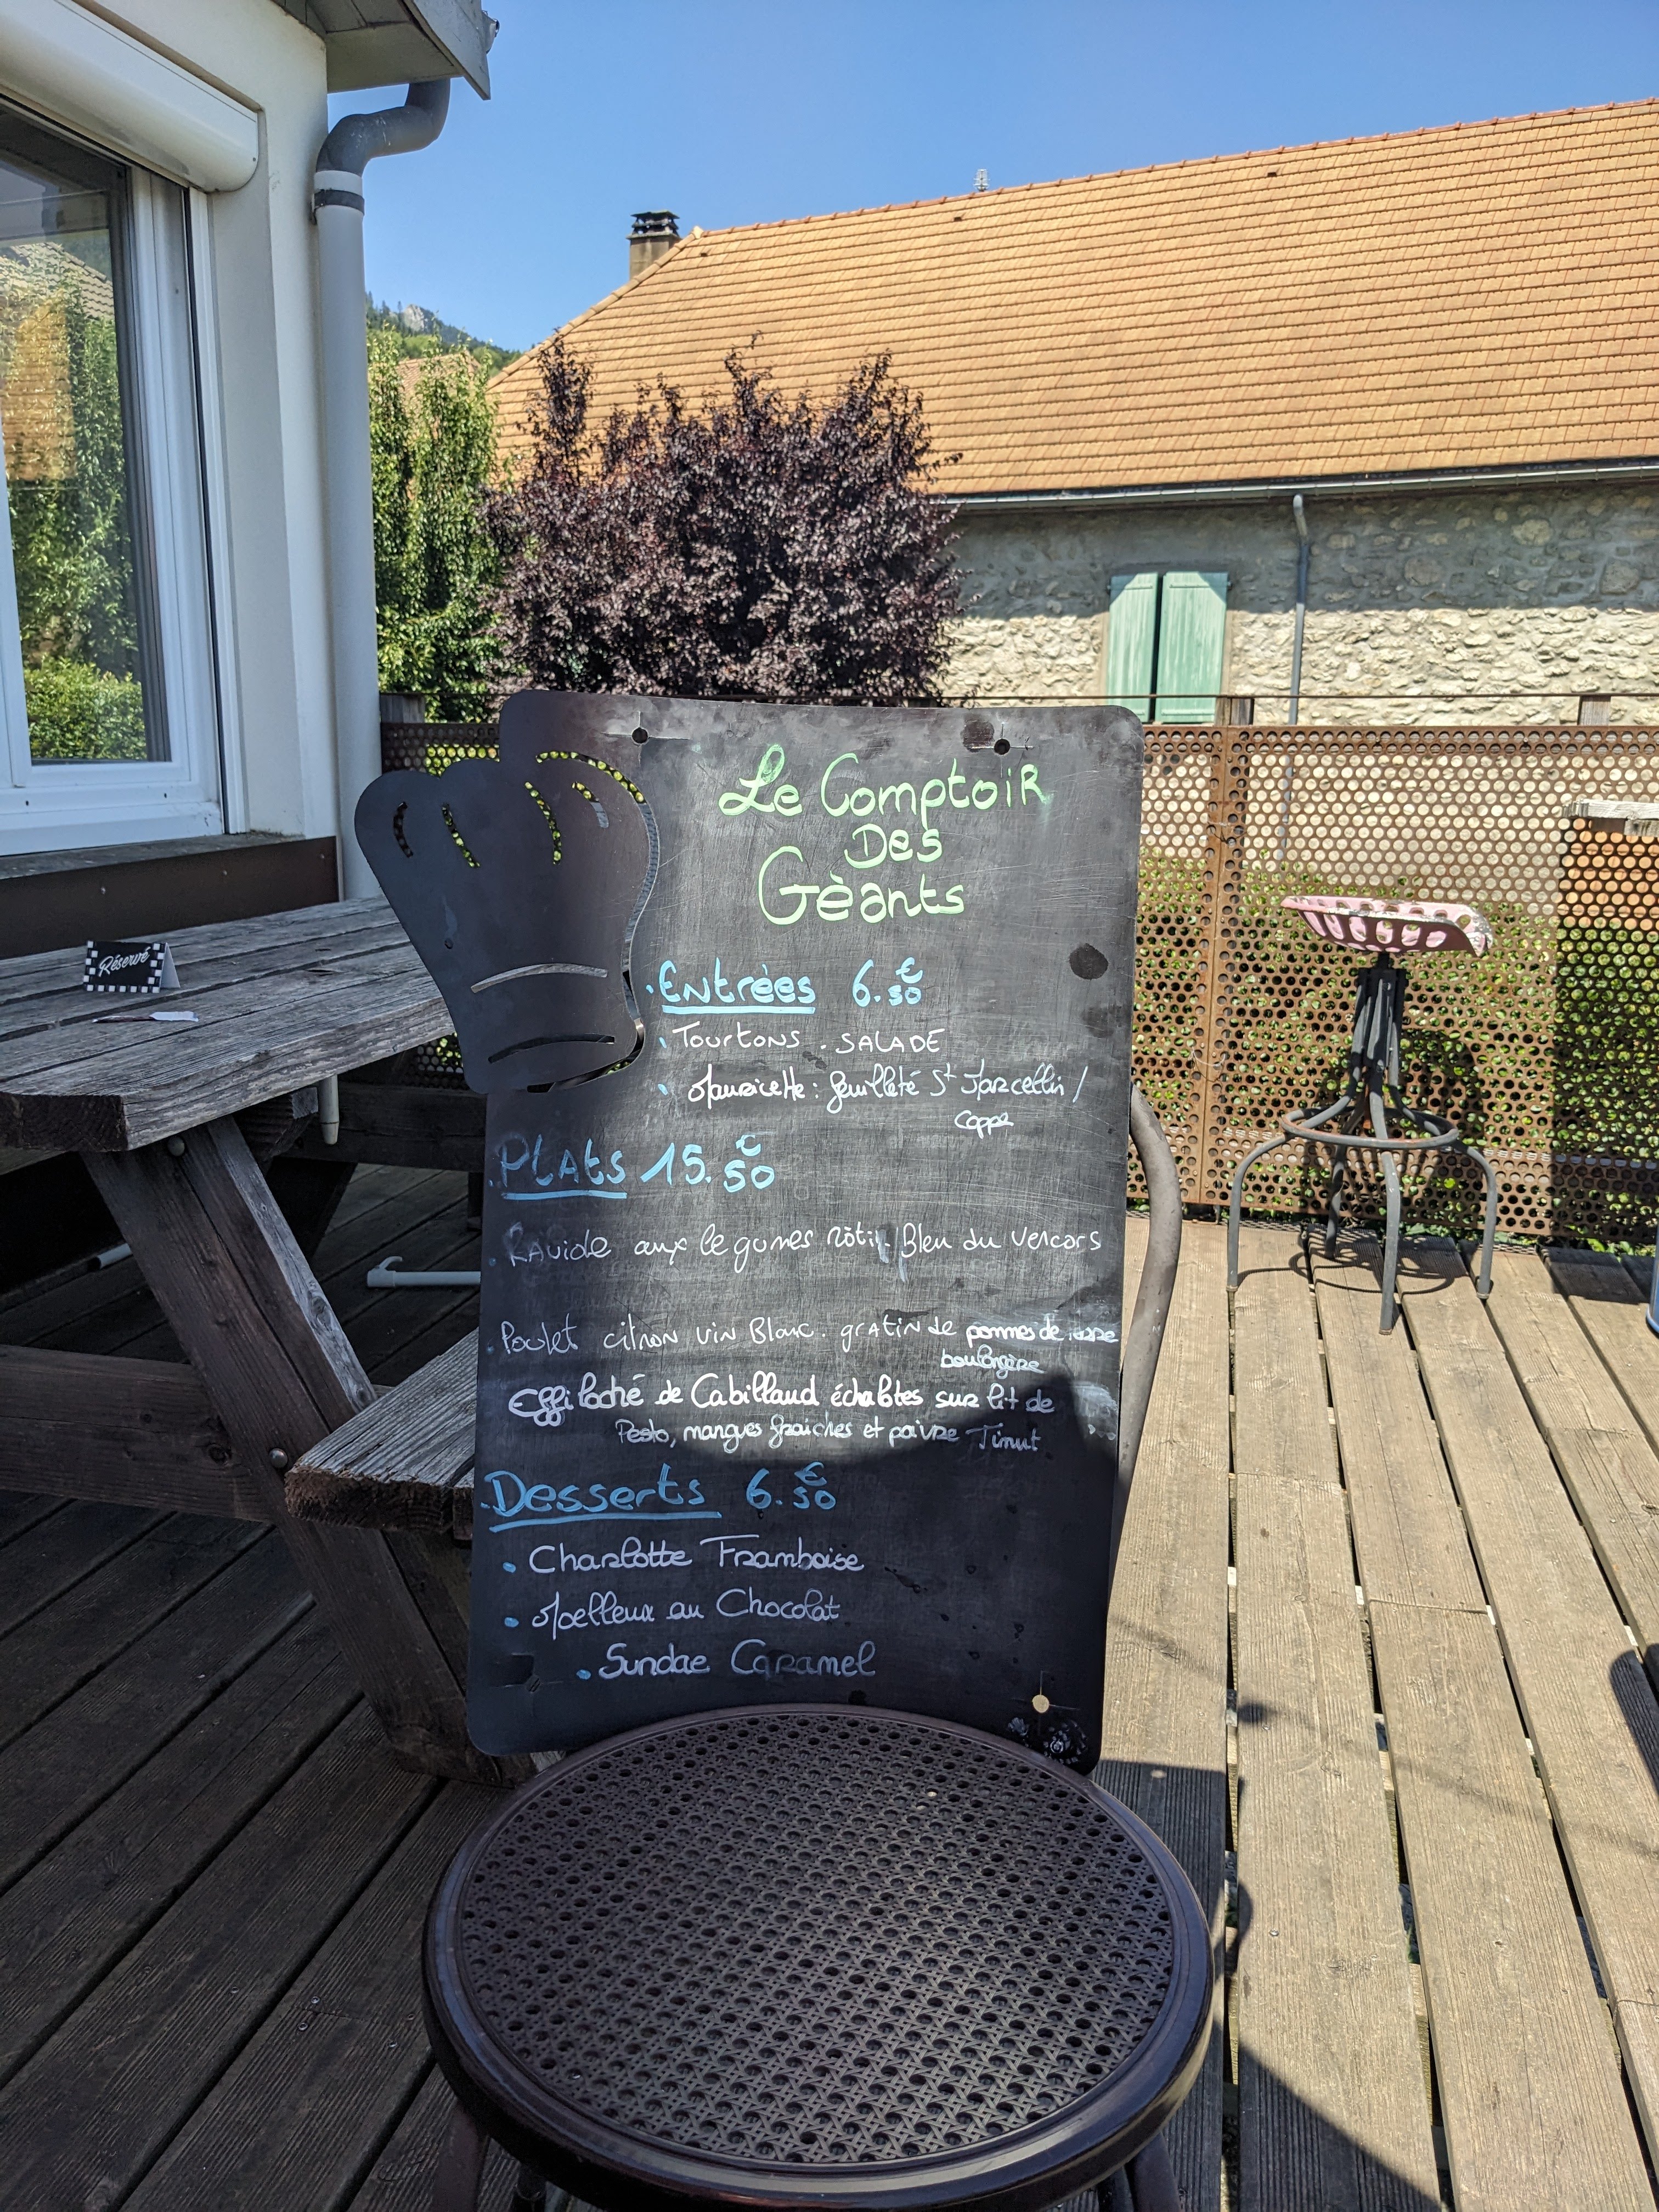 Le Comptoir
Des
Gèants
Réservé
Entrèes 6.50€
Tourtons . SALADE
Mauricette : feuilleté St Marcellin /
coppa
Plats 15.50€
Raviole aux legumes rôtis / Bleu du vercors
Poulet citron vin Blanc . gratin de pommes de terre
boulangère
Effiloché de Cabillaud échalotes sur lit de
Pesto, mangues fraiches et poivre Timut
Desserts 6.50€
Charlotte Framboise
Moelleux au Chocolat
Sundae Caramel